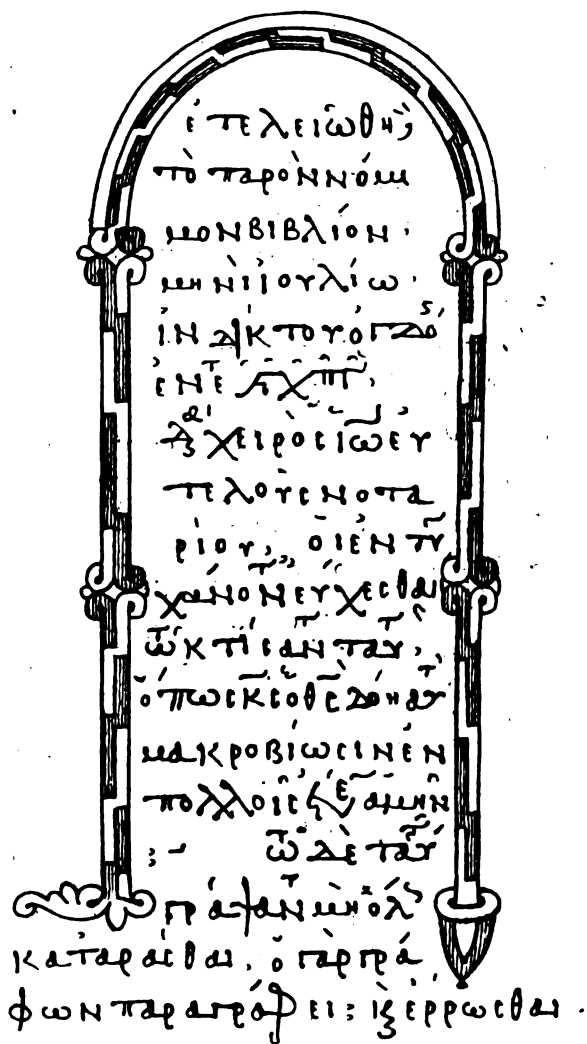 ἐτελειώθη,
τὸ παρὸν νόμι
μον βιβλίον·
μηνὶ ἰουλίω·
ἰνδικτου ὀγδό
ἐν ἔτ
χειρὸς ἰω εὐ
τελοῦς νοτα
ρίου, οἱ ἐντυ
χάνοντ εὔχεσθαι
τῶ κτίσαντ ταυτ,
ὅπως κς ὁ θς δόη αὐτ
μακροβίωσιν ἐν
πολλοῖς ἀμὴν
:- τῶ δὲ ταῦτ
γράψαντ μὴ ὅλ
καταρᾶσθαι, ὁ γὰρ γρά
φων παραγράφει: κ ἔρρωσθαι.